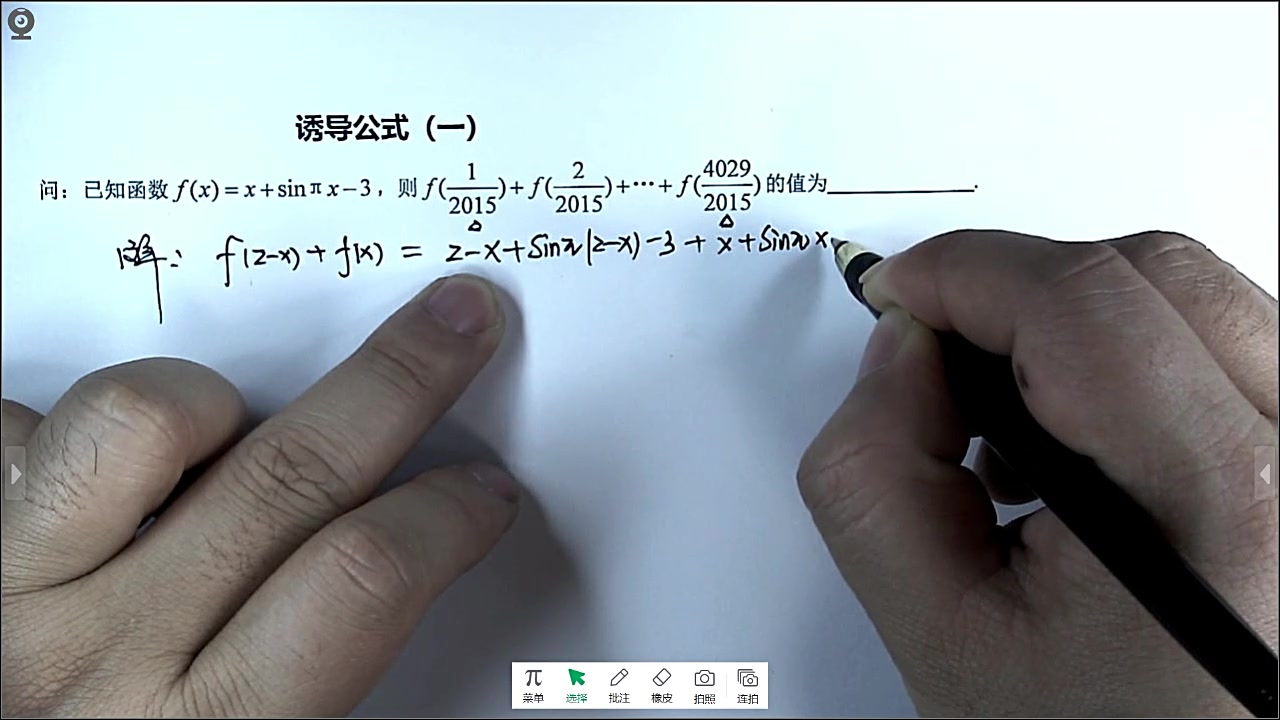 诱导公式（一）
问：已知函数 f(x)=x+sinπx−3，则 f(1/2015)+f(2/2015)+⋯+f(4029/2015) 的值为__________.
解： f(2-x)+f(x) = 2-x+sinπ(2-x)-3+x+sinπx
π
菜单 选择 批注 橡皮 拍照 连拍